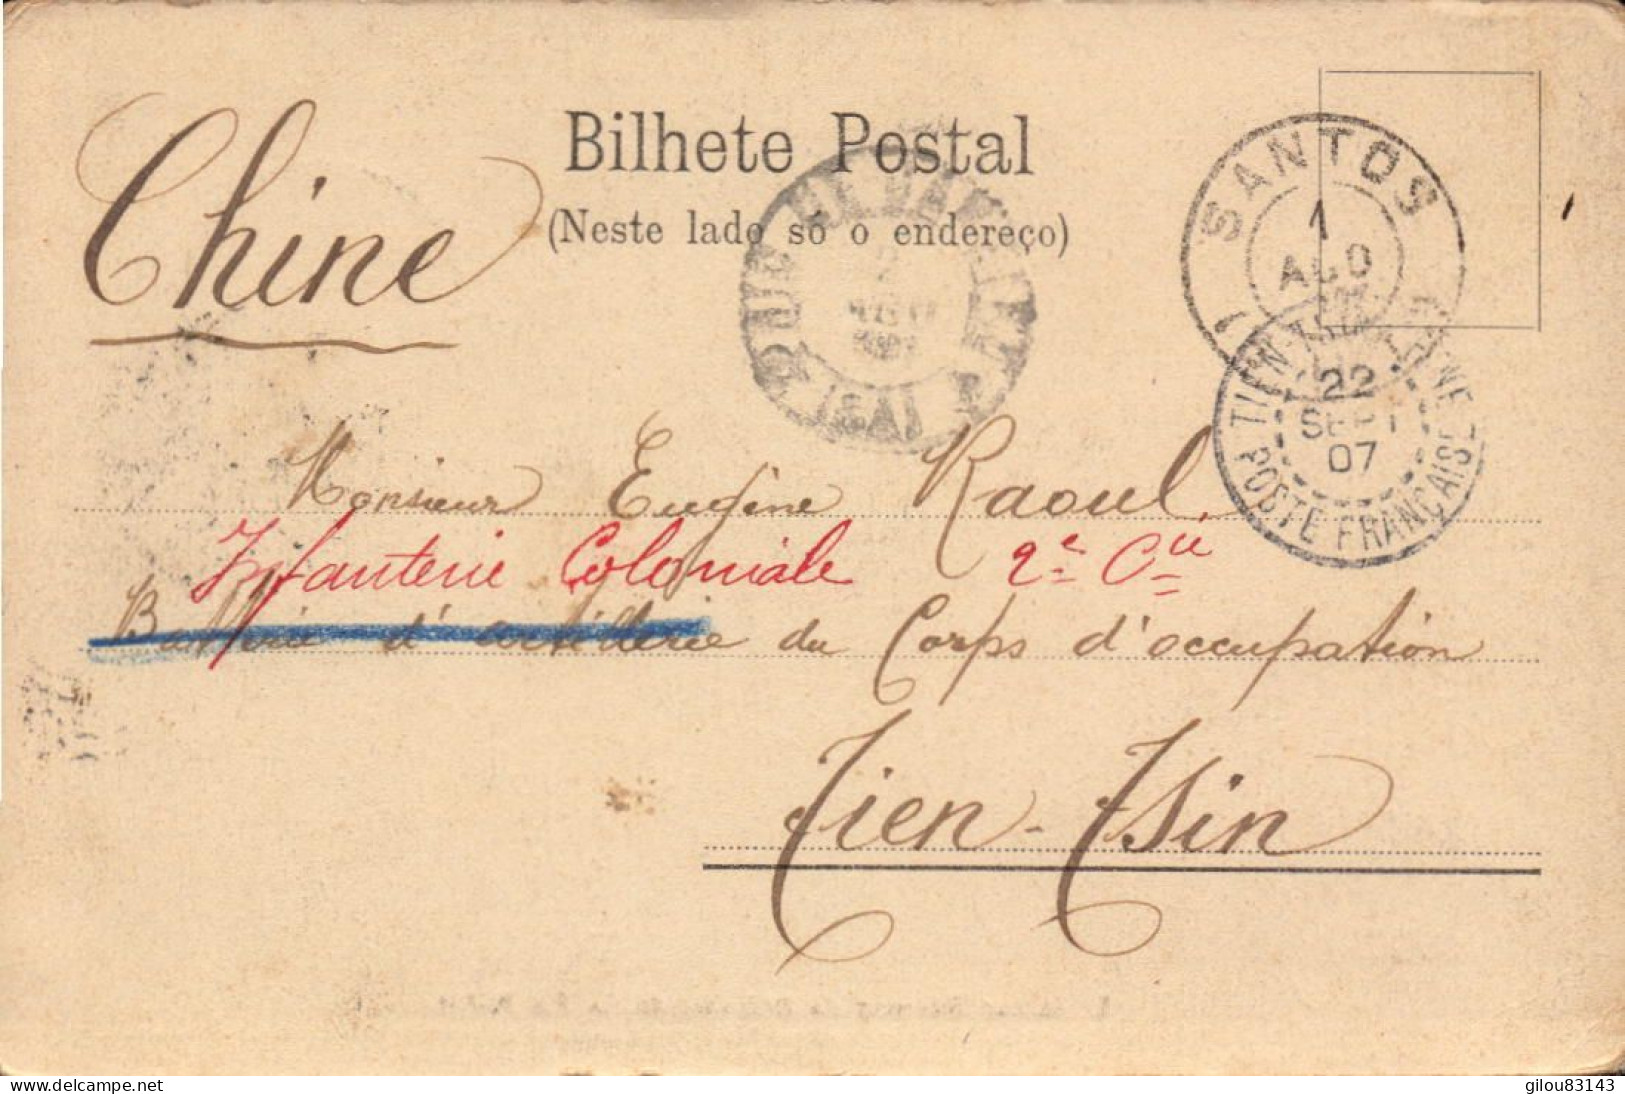 Chine
Bilhete Postal
(Neste lado só o endereço)
SANTOS
1
AGO
TIEN-TSIN CHINE
22
SEPT
07
POSTE FRANÇAISE
Monsieur Eugène Raoul
Infanterie Coloniale 2e Cie
Batterie d'artillerie du Corps d'occupation
Tien-Tsin
delcampe.net
gilou83143